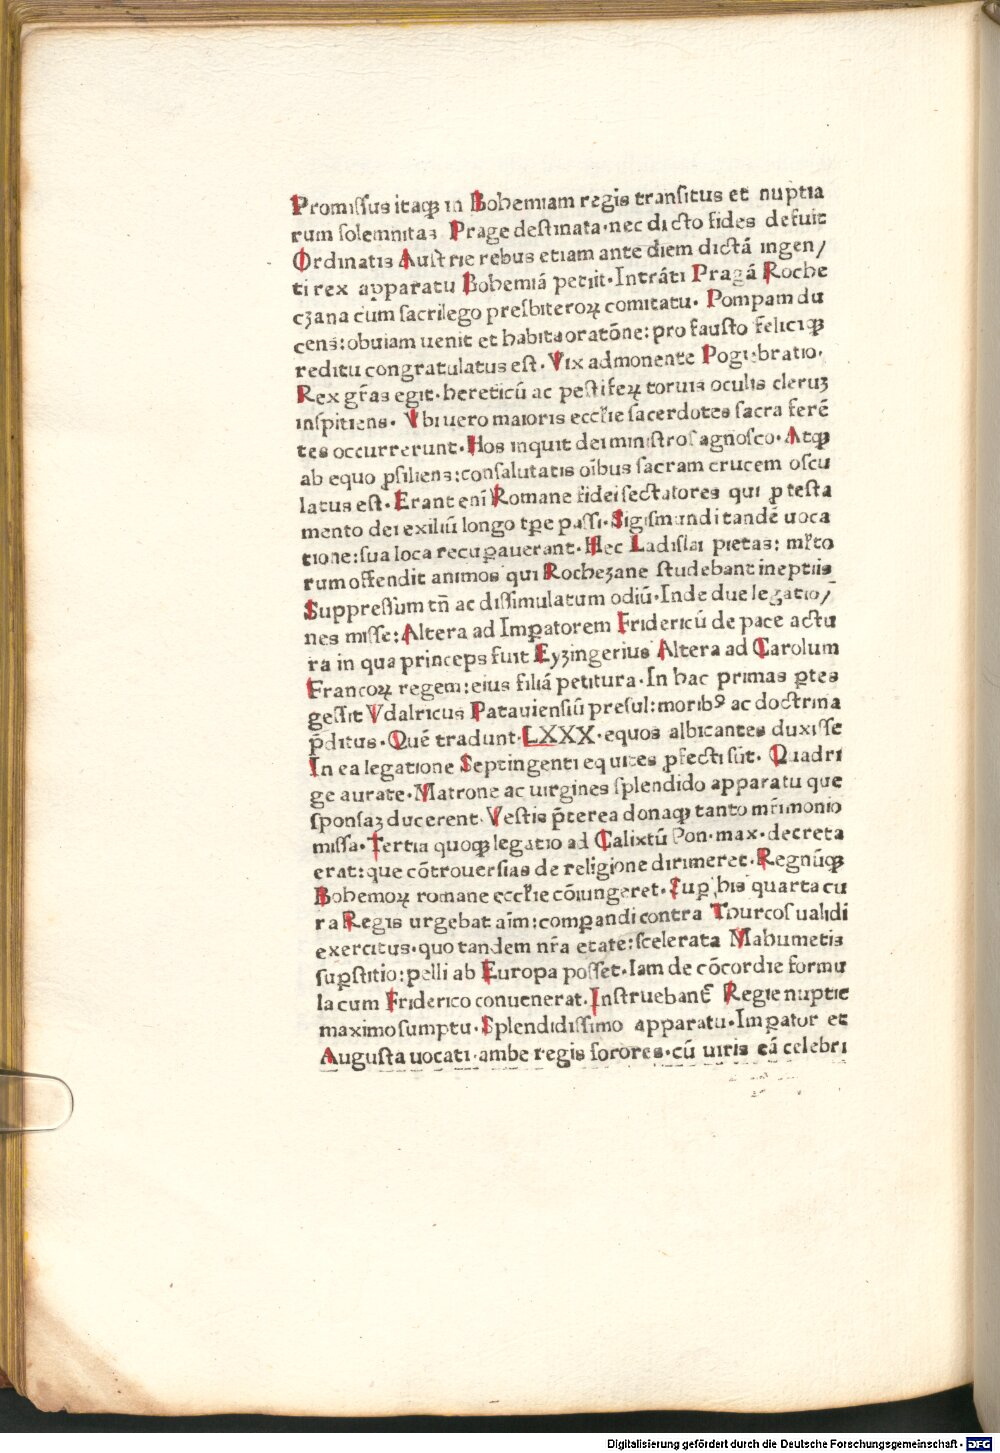 Promissus itaqꝫ in Bohemiam regis transitus et nuptia
rum solemnitaz Prage destinata·nec dicto fides defuit
Ordinatis Austrie rebus etiam ante diem dictā ingen/
ti rex apparatu Bohemiā petiit·Intrāti Pragā Roche
cʒana cum sacrilego presbiteroꝝ comitatu· Pompam du
cens:obuiam uenit et habita oratōne:pro fausto feliciqꝫ
reditu congratulatus est·Vix admonente Pogiebratio·
Rex gr̄as egit·hereticū ac pestiferꝝ toruis oculis cleruʒ
inspitiens· Vbi uero maioris eccl̄ie sacerdotes sacra ferē
tes occurrerunt·Hos inquit dei ministros agnosco·Atqꝫ
ab equo ꝓsiliens:consalutatis oībus sacram crucem oscu
latus est·Erant enī Romane fidei sectatores qui ꝓ testa
mento dei exiliū longo tp̄e passi·Sigismundi tandē uoca
tione:sua loca recuꝑauerant·Hec Ladislai pietas: ml̄to
rum offendit animos qui Rocheʒane studebant ineptiis
Suppressum tn̄ ac dissimulatum odiū·Inde due legatio/
nes misse:Altera ad Imꝑatorem Fridericū de pace actu
ra in qua princeps fuit Eyʒingerius Altera ad Carolum
Francoꝝ regem:eius filiā petitura·In hac primas ꝑtes
gessit Vdalricus Patauiensiū presul:moribꝰ ac doctrina
p̄ditus·Quē tradunt·LXXX·equos albicantes duxisse
In ea legatione Septingenti equites ꝓfecti sūt· Quadri
ge aurate·Matrone ac uirgines splendido apparatu que
sponsaʒ ducerent·Vestis p̄terea donaqꝫ tanto mr̄imonio
missa·Tertia quoqꝫ legatio ad Calixtū Pon·max·decreta
erat:que cōtrouersias de religione dirimeret·Regnūqꝫ
Bohemoꝝ romane eccl̄ie cōiungeret·Suꝑ his quarta cu
ra Regis urgebat aīm:comꝑandi contra Thurcos ualidi
exercitus·quo tandem nr̄a etate:scelerata Mahumetis
suꝑstitio:pelli ab Europa posset·Iam de cōcordie formu
la cum Friderico conuenerat·Instruebant᷑ Regie nuptie
maximo sumptu·Splendidissimo apparatu·Imꝑator et
Augusta uocati·ambe regis sorores·cū uiris eā celebri
Digitalisierung gefördert durch die Deutsche Forschungsgemeinschaft - DFG